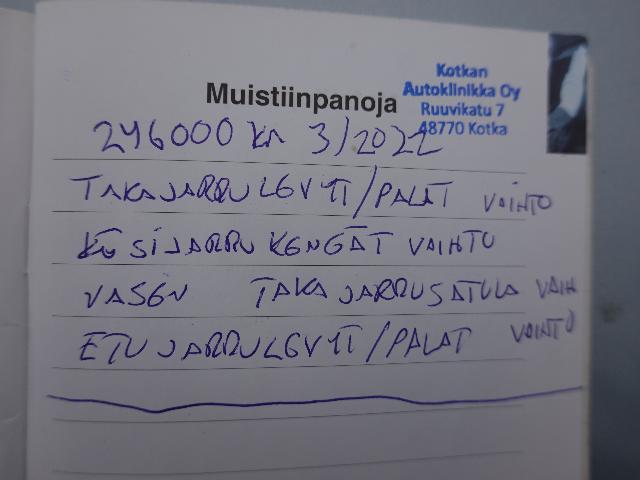 Kotkan
Autoklinikka Oy
Ruuvikatu 7
48770 Kotka
Muistiinpanoja
246000 km 3/2022
TAKAJARRULEVYT/PALAT VAIHTO
KÄSIJARRU KENGÄT VAIHTO
VASEN TAKA JARRUSATULA VAIH
ETUJARRULEVYT/PALAT VAIHTO